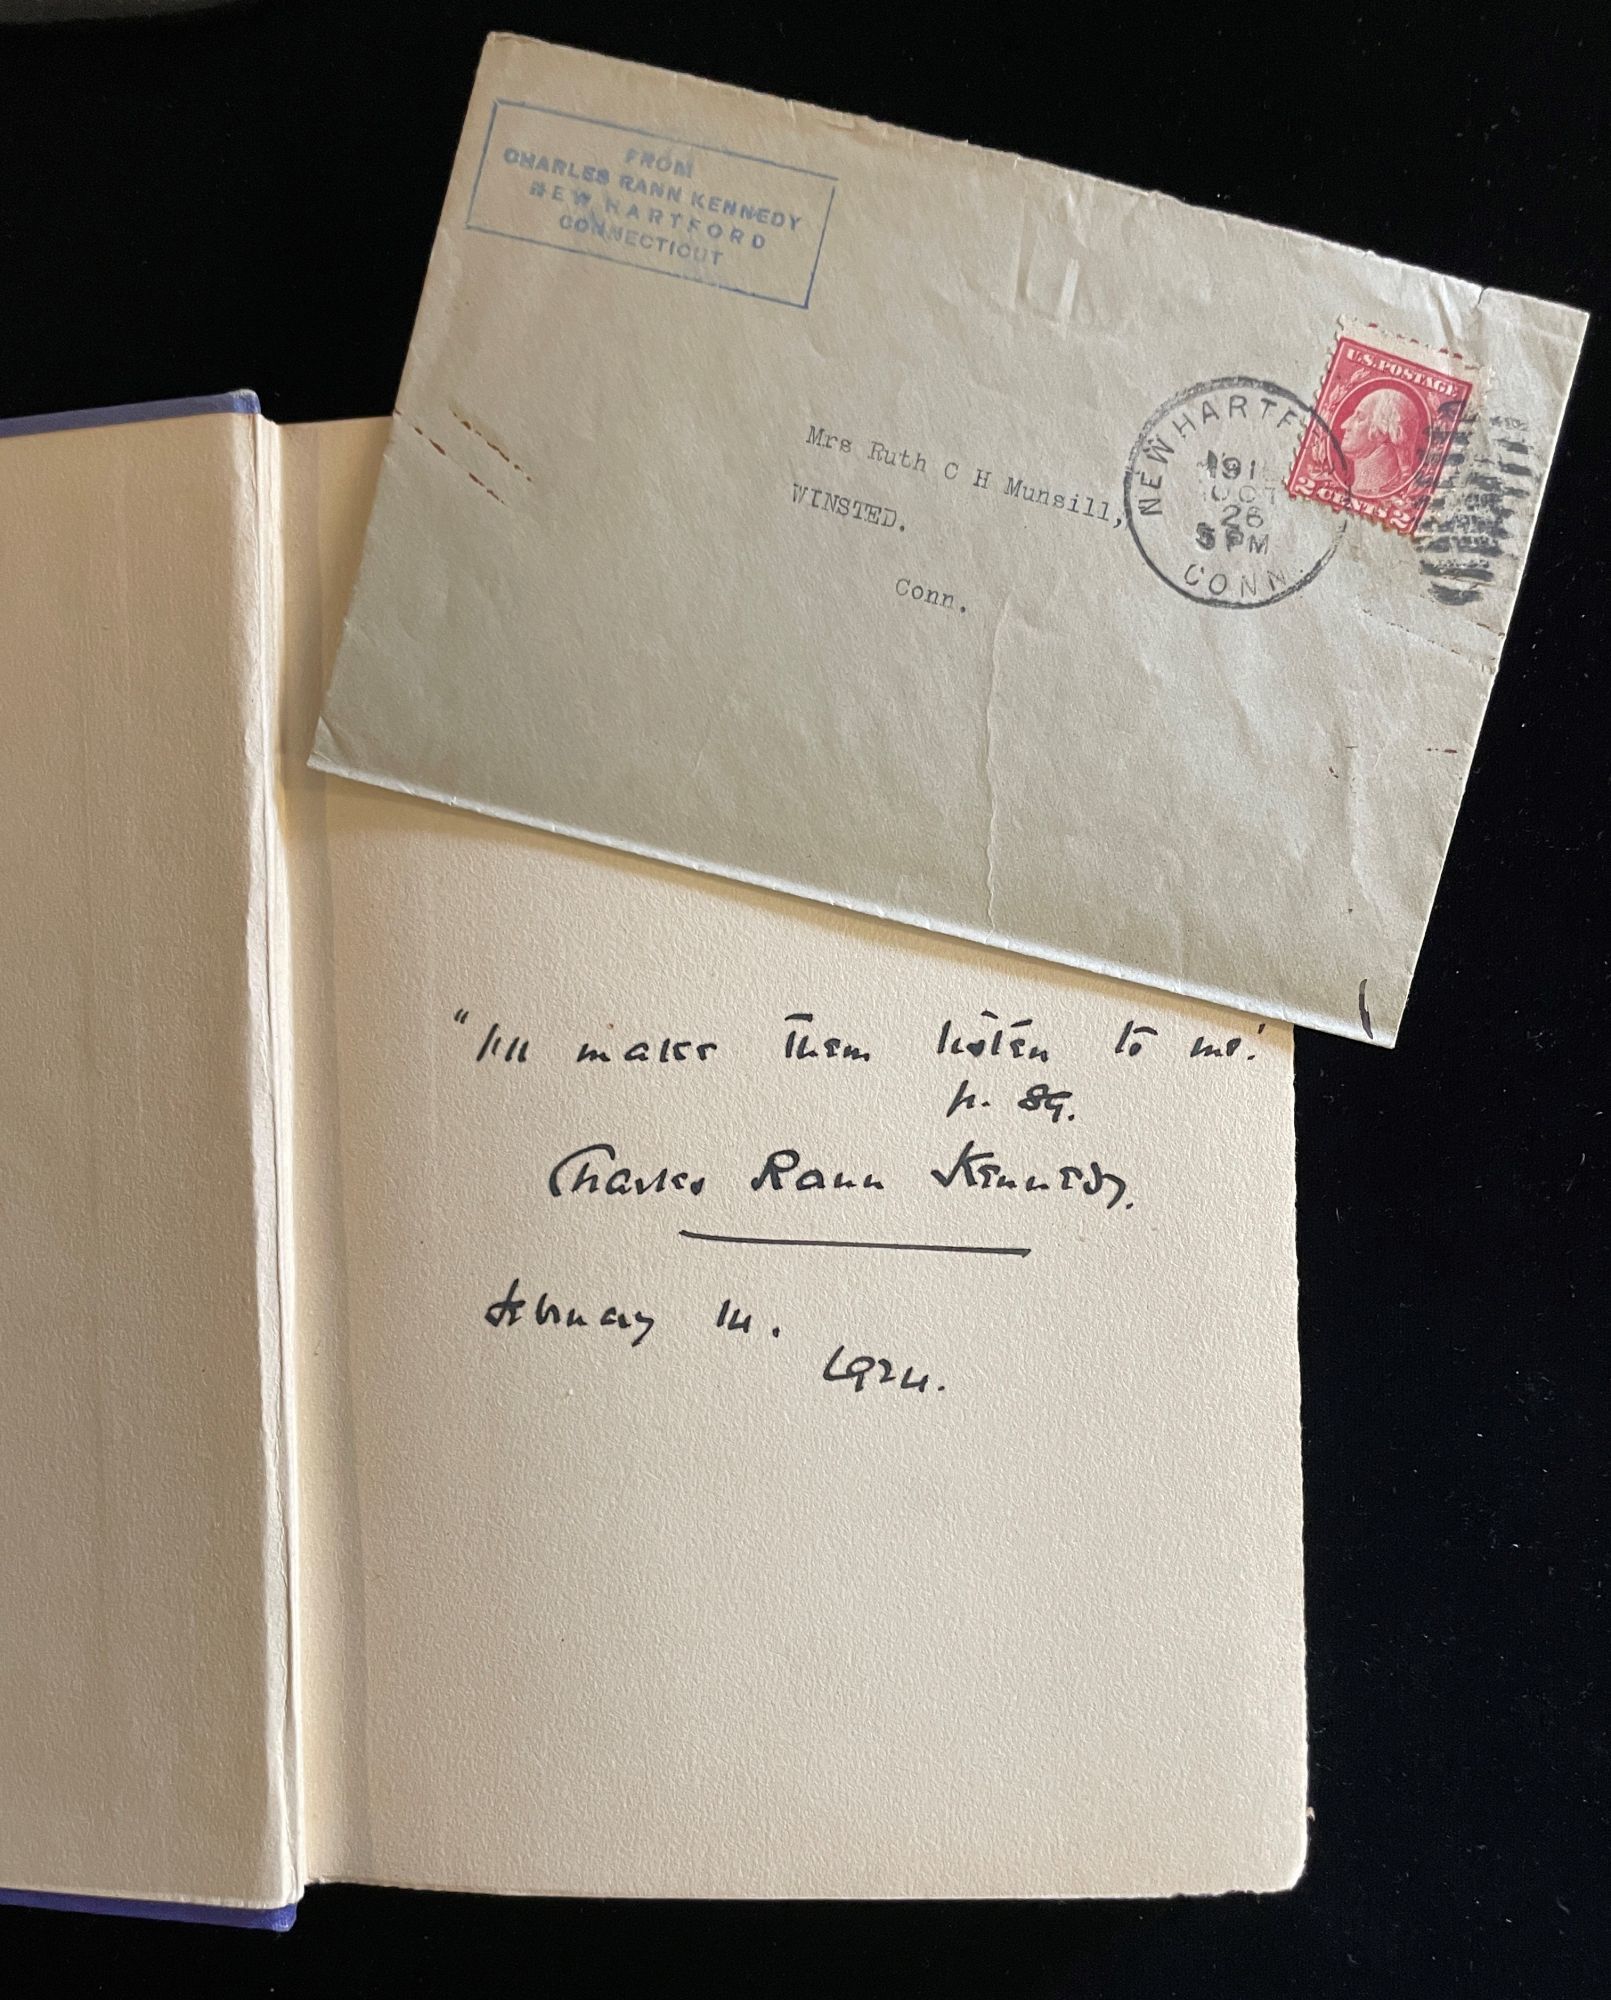 FROM
CHARLES RANN KENNEDY
NEW HARTFORD
CONNECTICUT
U.S. POSTAGE
2 CENTS 2
NEW HARTF
191
OCT
26
5 PM
CONN.
Mrs Ruth C H Munsill,
WINSTED.
Conn.
"I'll make them listen to me!'
p. 89.
Charles Rann Kennedy.
February 14.
1924.